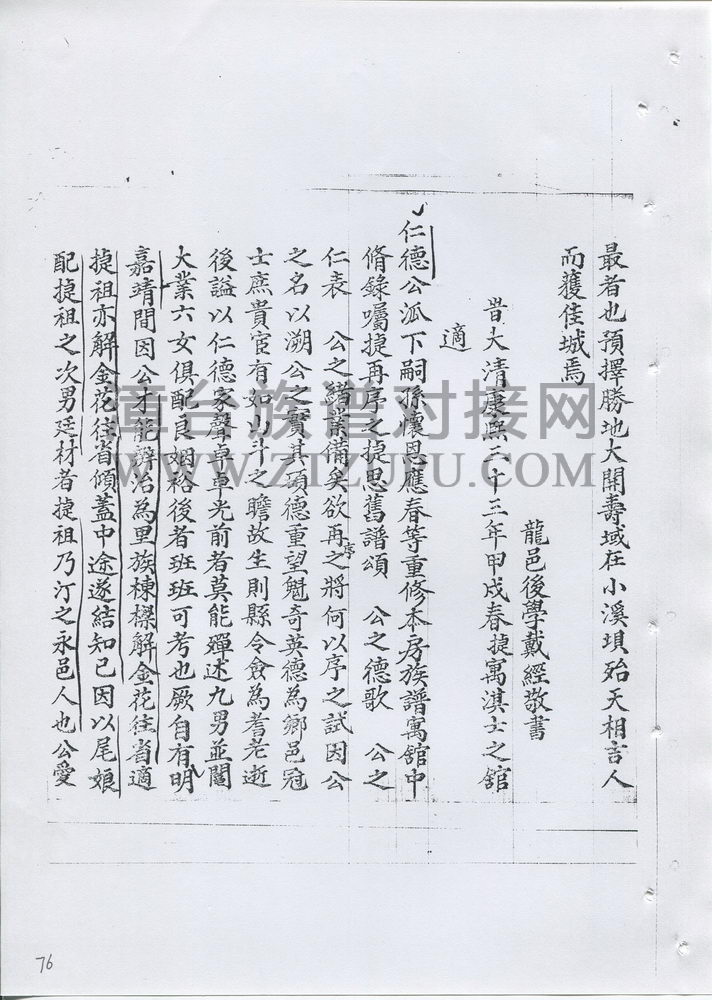 最者也預擇勝地大開壽域在小溪垻殆天相吉人
而獲佳城焉
龍邑後學戴經敬書
昔大清康熙三十三年甲戍春捷寓淇士之舘
適
仁德公派下嗣孫懷恩應春等重修本房族譜寓舘中
脩錄囑捷再序之捷思舊譜頌 公之德歌 公之
仁表 公之緒業備矣欲再序之將何以序之試因公
之名以溯公之實其碩德重望魁奇英德為鄉邑冠
士庶貴宦有如山斗之瞻故生則縣令僉為耆老逝
後謚以仁德家聲卓卓光前者莫能殫述九男並闡
大業六女俱配良姻裕後者班班可考也厥自有明
嘉靖間因公才能辭治為里族棟樑解金花往省適
捷祖亦解金花往省傾蓋中途遂結知己因以尾娘
配捷祖之次男廷材者捷祖乃汀之永邑人也公愛
76
潭台族谱对接网
WWW.ZTZUPU.COM